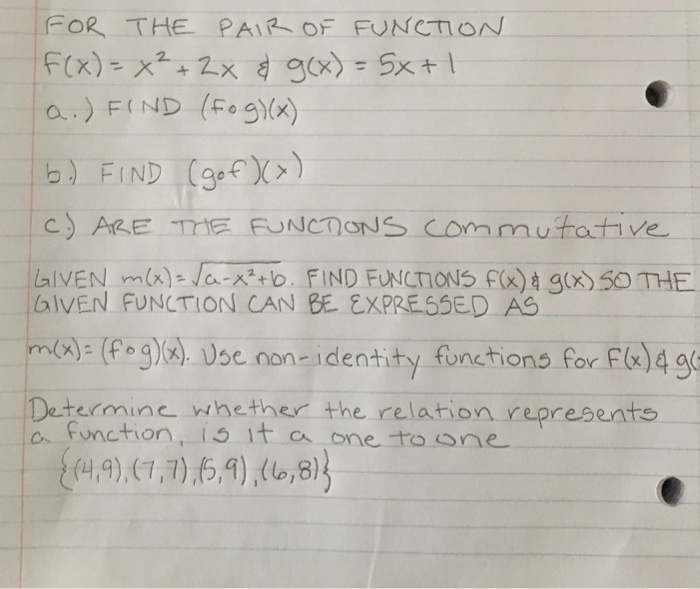 FOR THE PAIR OF FUNCTION
F(x) = x² + 2x & g(x) = 5x + 1
a.) FIND (fog)(x)
b.) FIND (gof)(x)
c.) ARE THE FUNCTIONS commutative
GIVEN m(x) = √a-x²+b. FIND FUNCTIONS f(x) & g(x) SO THE
GIVEN FUNCTION CAN BE EXPRESSED AS
m(x) = (fog)(x). Use non-identity functions for F(x) & g(
Determine whether the relation represents
a function, is it a one to one
{(4,9),(7,7),(5,9),(6,8)}